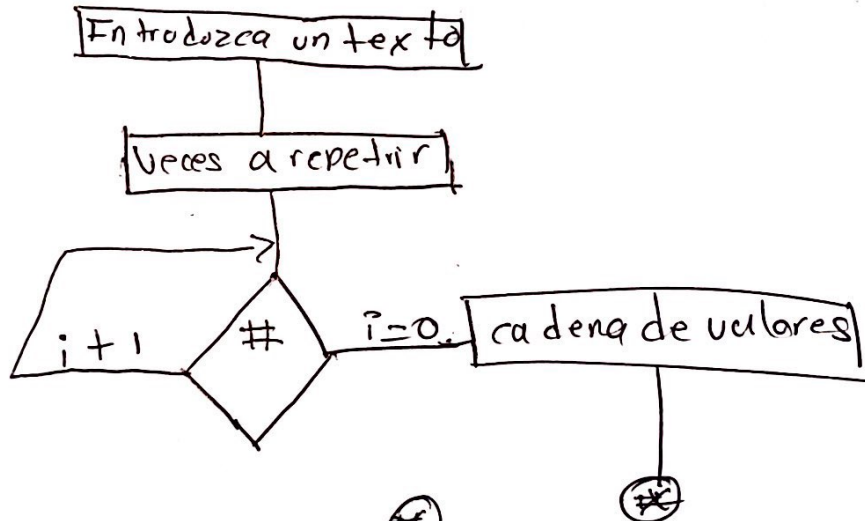 Introduzca un texto
Veces a repetrir
i + 1
#
i=0.
cadena de valores
*
*